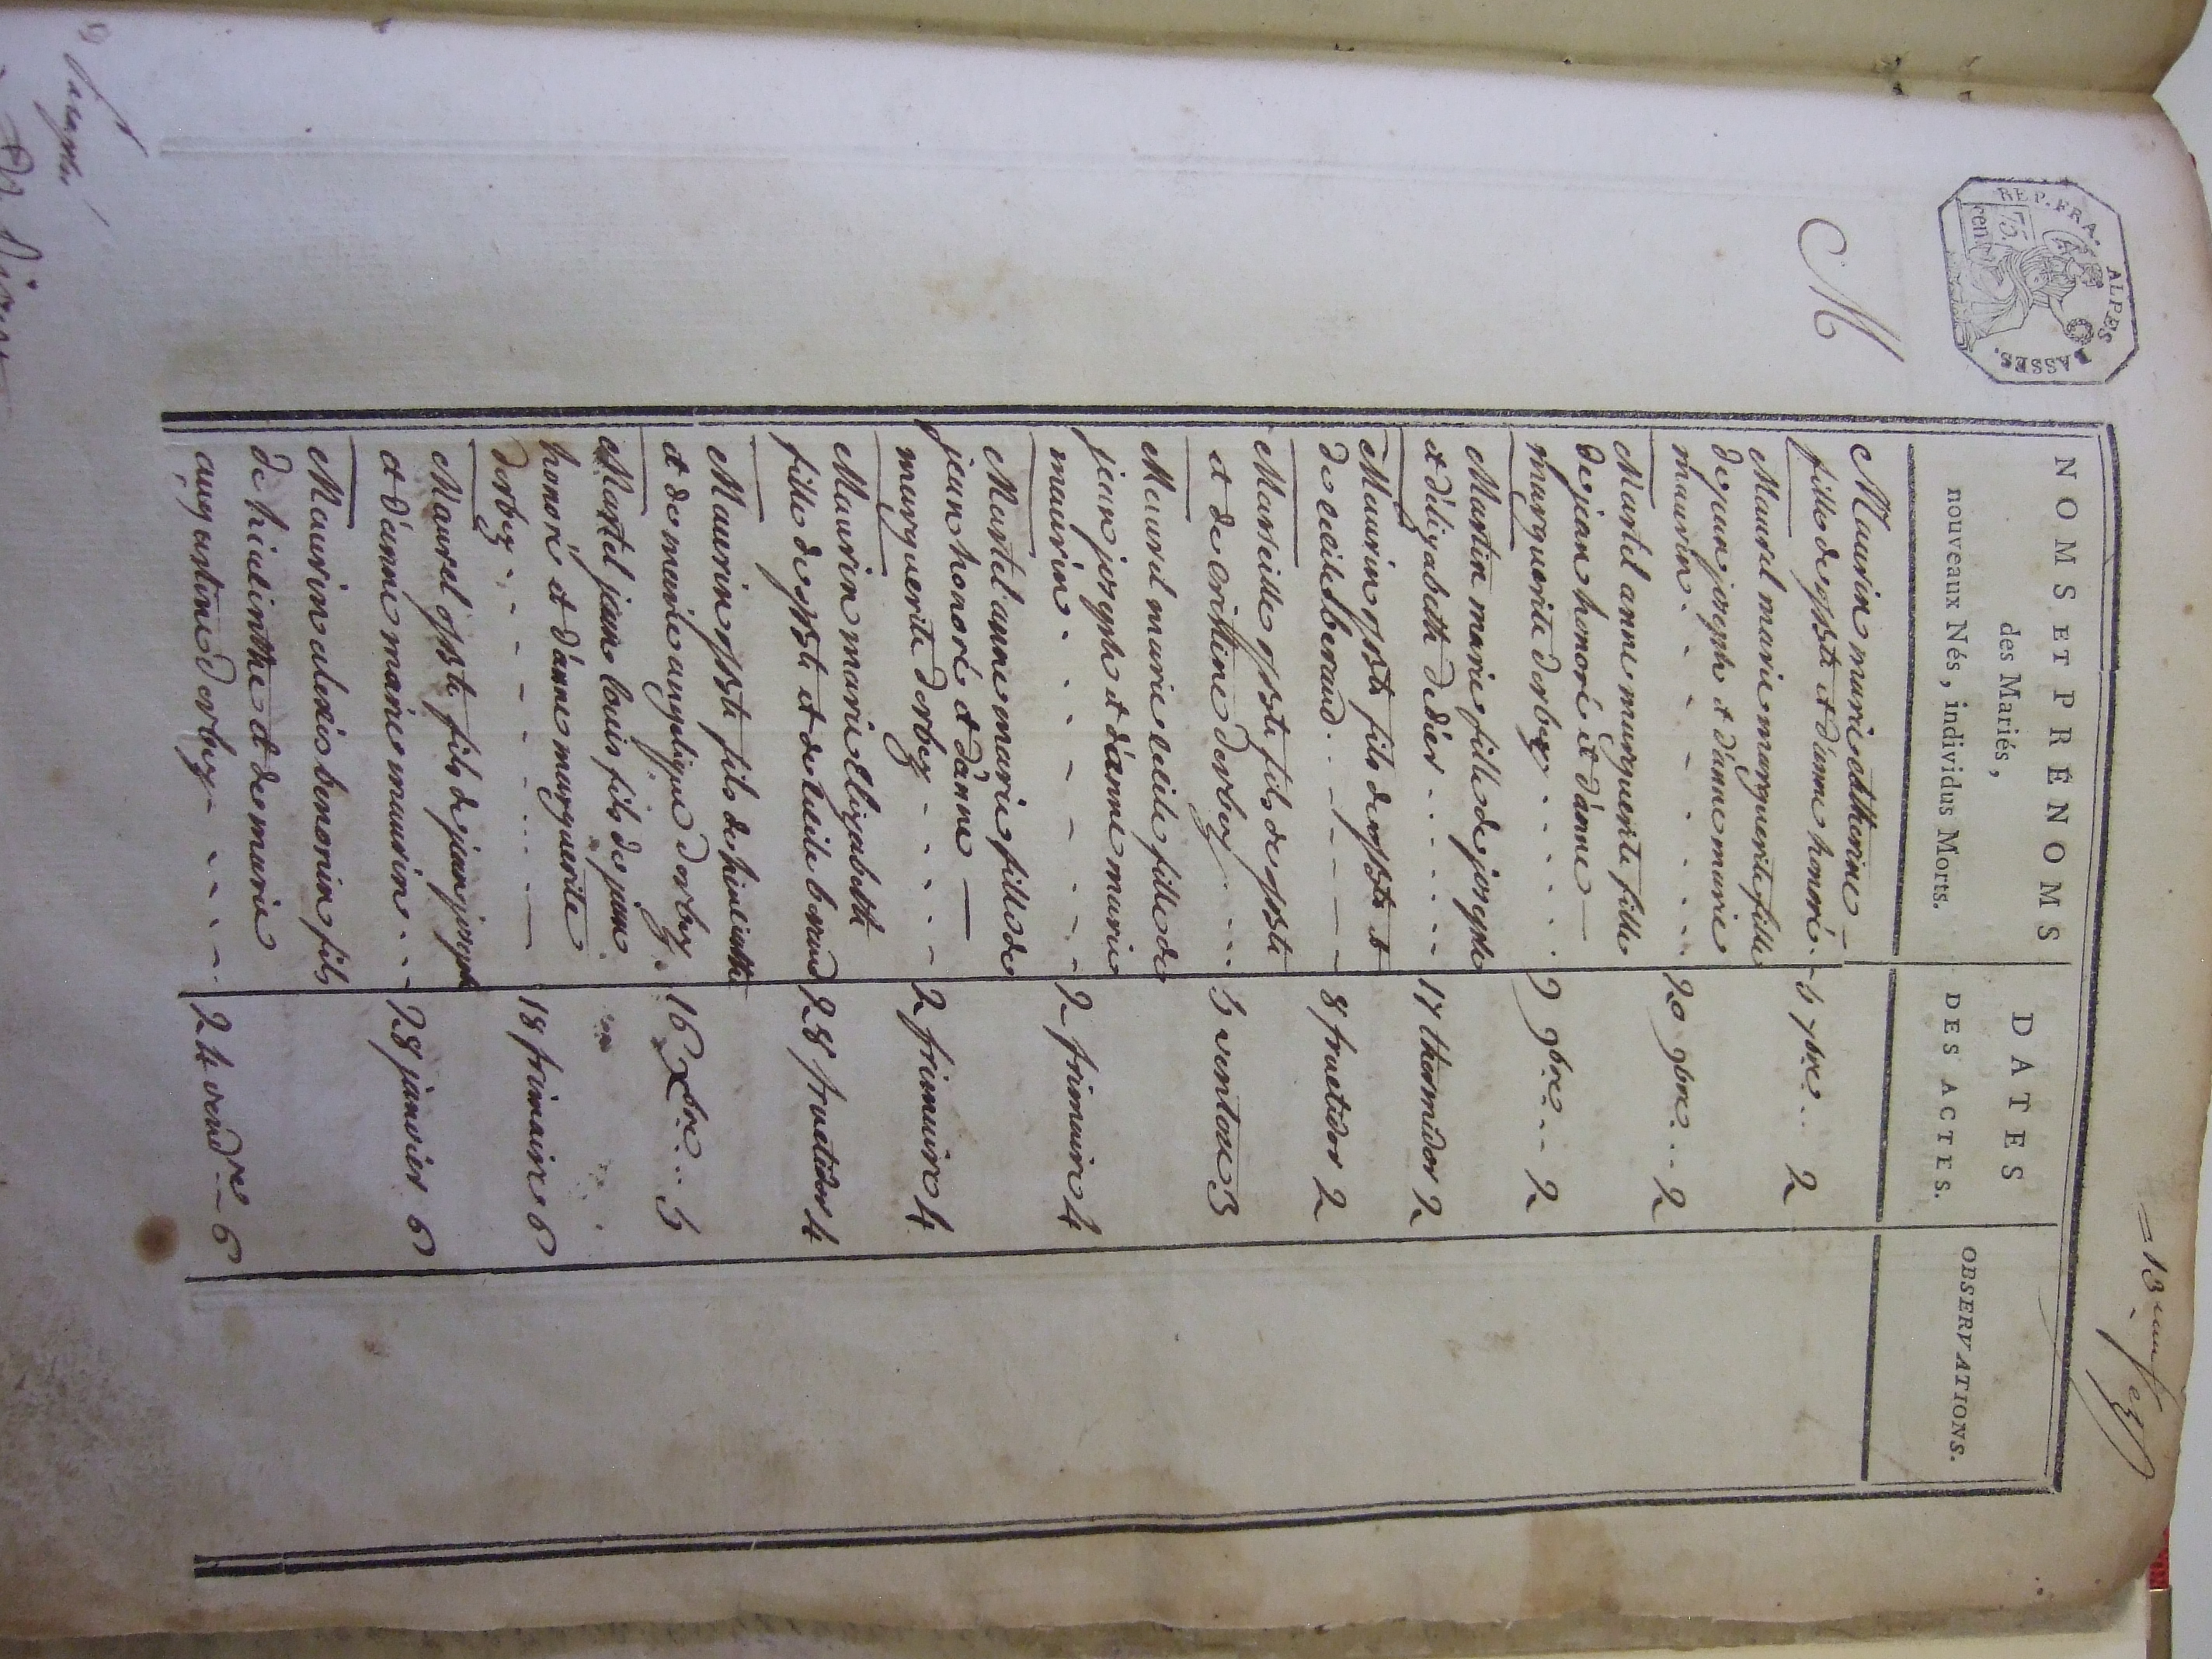 = 13
REP. FRA. ALPES BASSES.
75 cen
M
NOMS ET PRÉNOMS
des Mariés,
nouveaux Nés, individus Morts.
DATES
DES ACTES.
OBSERVATIONS.
Maurin marie catherine —
fille de jpbte et d'anne honoré . - 5 7bre .. 2
Maurel marie marguerite fille
de jean joseph et d'anne marie
maurin . - - - . - . . 20 9bre .. 2
Martel anne marguerite fille
de jean honoré et d'anne —
marguerite dorbey . . . . . 9 9bre .. 2
Martin marie fille de joseph
et d'élizabeth didier . . . . - - 17 thermidor 2
Maurin jpbte fils de jpbte et
de cécile beraud . . - - - - — 8 fructidor 2
Marseille jpbte fils de jpbte
et de cristine dorbey . . . 5 ventose 3
Maurel marie cécile fille de
jean joseph et d'anne marie
maurin . . . - - . - - 2 frimaire 4
Martel anne marie fille de
jean honoré et d'anne —
marguerite dorbey . . . . - 2 frimaire 4
Maurin marie élizabeth
fille de jpbte et de cécile beraud 28 fructidor 4
Maurin jpbte fils de hiacinthe
et de marie angelique dorbey . 16 Xbre .. 5
Martel jean louis fils de jean
honoré et d'anne marguerite
dorbey . . - - - . . . — 18 frimaire 6
Maurel jpbte fils de jean joseph
et d'anne marie maurin . . - 28 janvier 6
Maurin alexis honorin fils
de hiacinthe et de marie
augustine dorbey - - - - - . 24 vend.re - 6